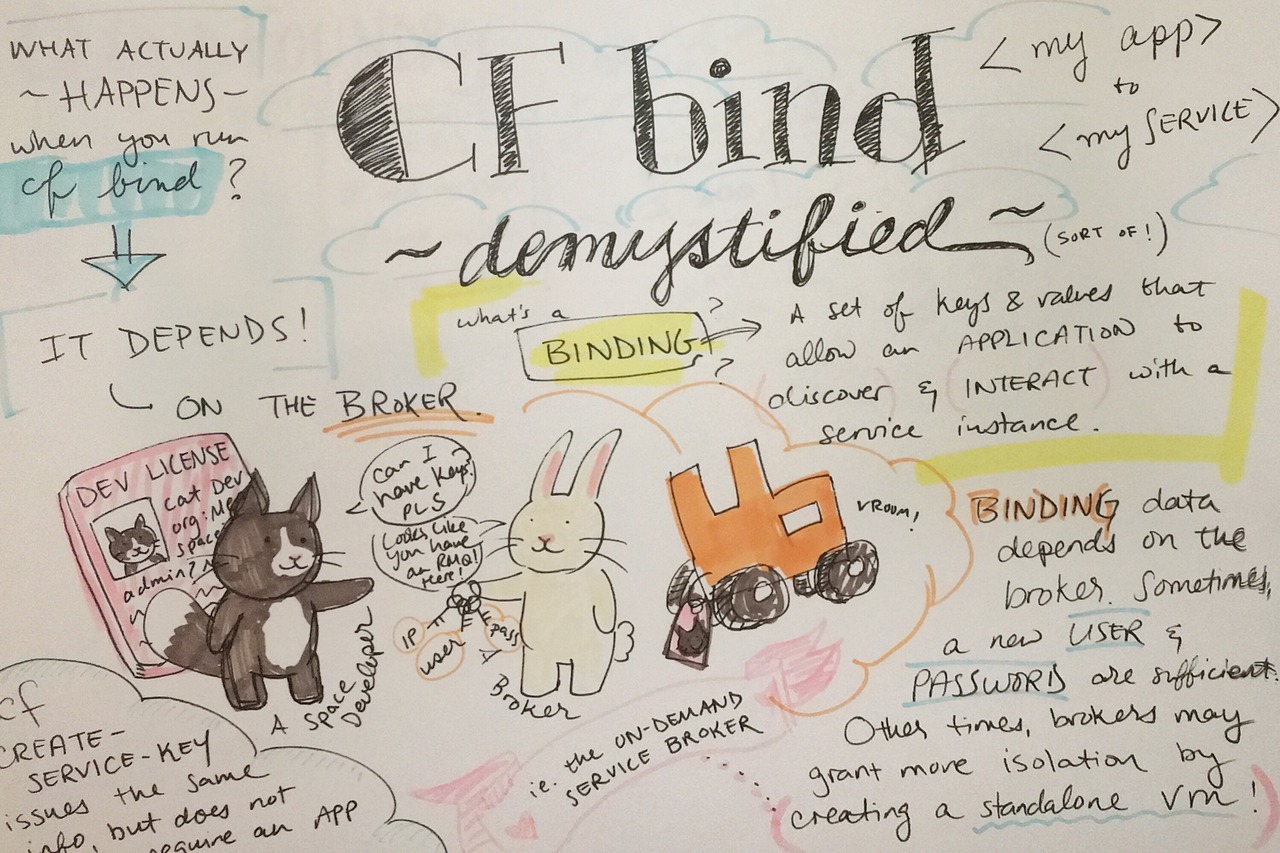 WHAT ACTUALLY
~ HAPPENS ~
when you run
cf bind ?
CF bind
<my app>
to
<my SERVICE>
~ demystified ~
(SORT OF!)
IT DEPENDS!
ON THE BROKER.
what's a
BINDING
?
?
A set of keys & values that
allow an APPLICATION to
discover & INTERACT with a
service instance.
DEV LICENSE
cat Dev
org: Me
space
admin?
Can I
have keys?
PLS
Looks like
you have
an RMQ
Here!
IP
user
pass
A Space
Developer
Broker
VROOM!
BINDING data
depends on the
broker. Sometimes,
a new USER &
PASSWORD are sufficient.
Other times, brokers may
grant more isolation by
creating a standalone VM!
ie. the ON-DEMAND
SERVICE BROKER
cf
CREATE-
SERVICE-KEY
issues the same
info, but does not
require an APP